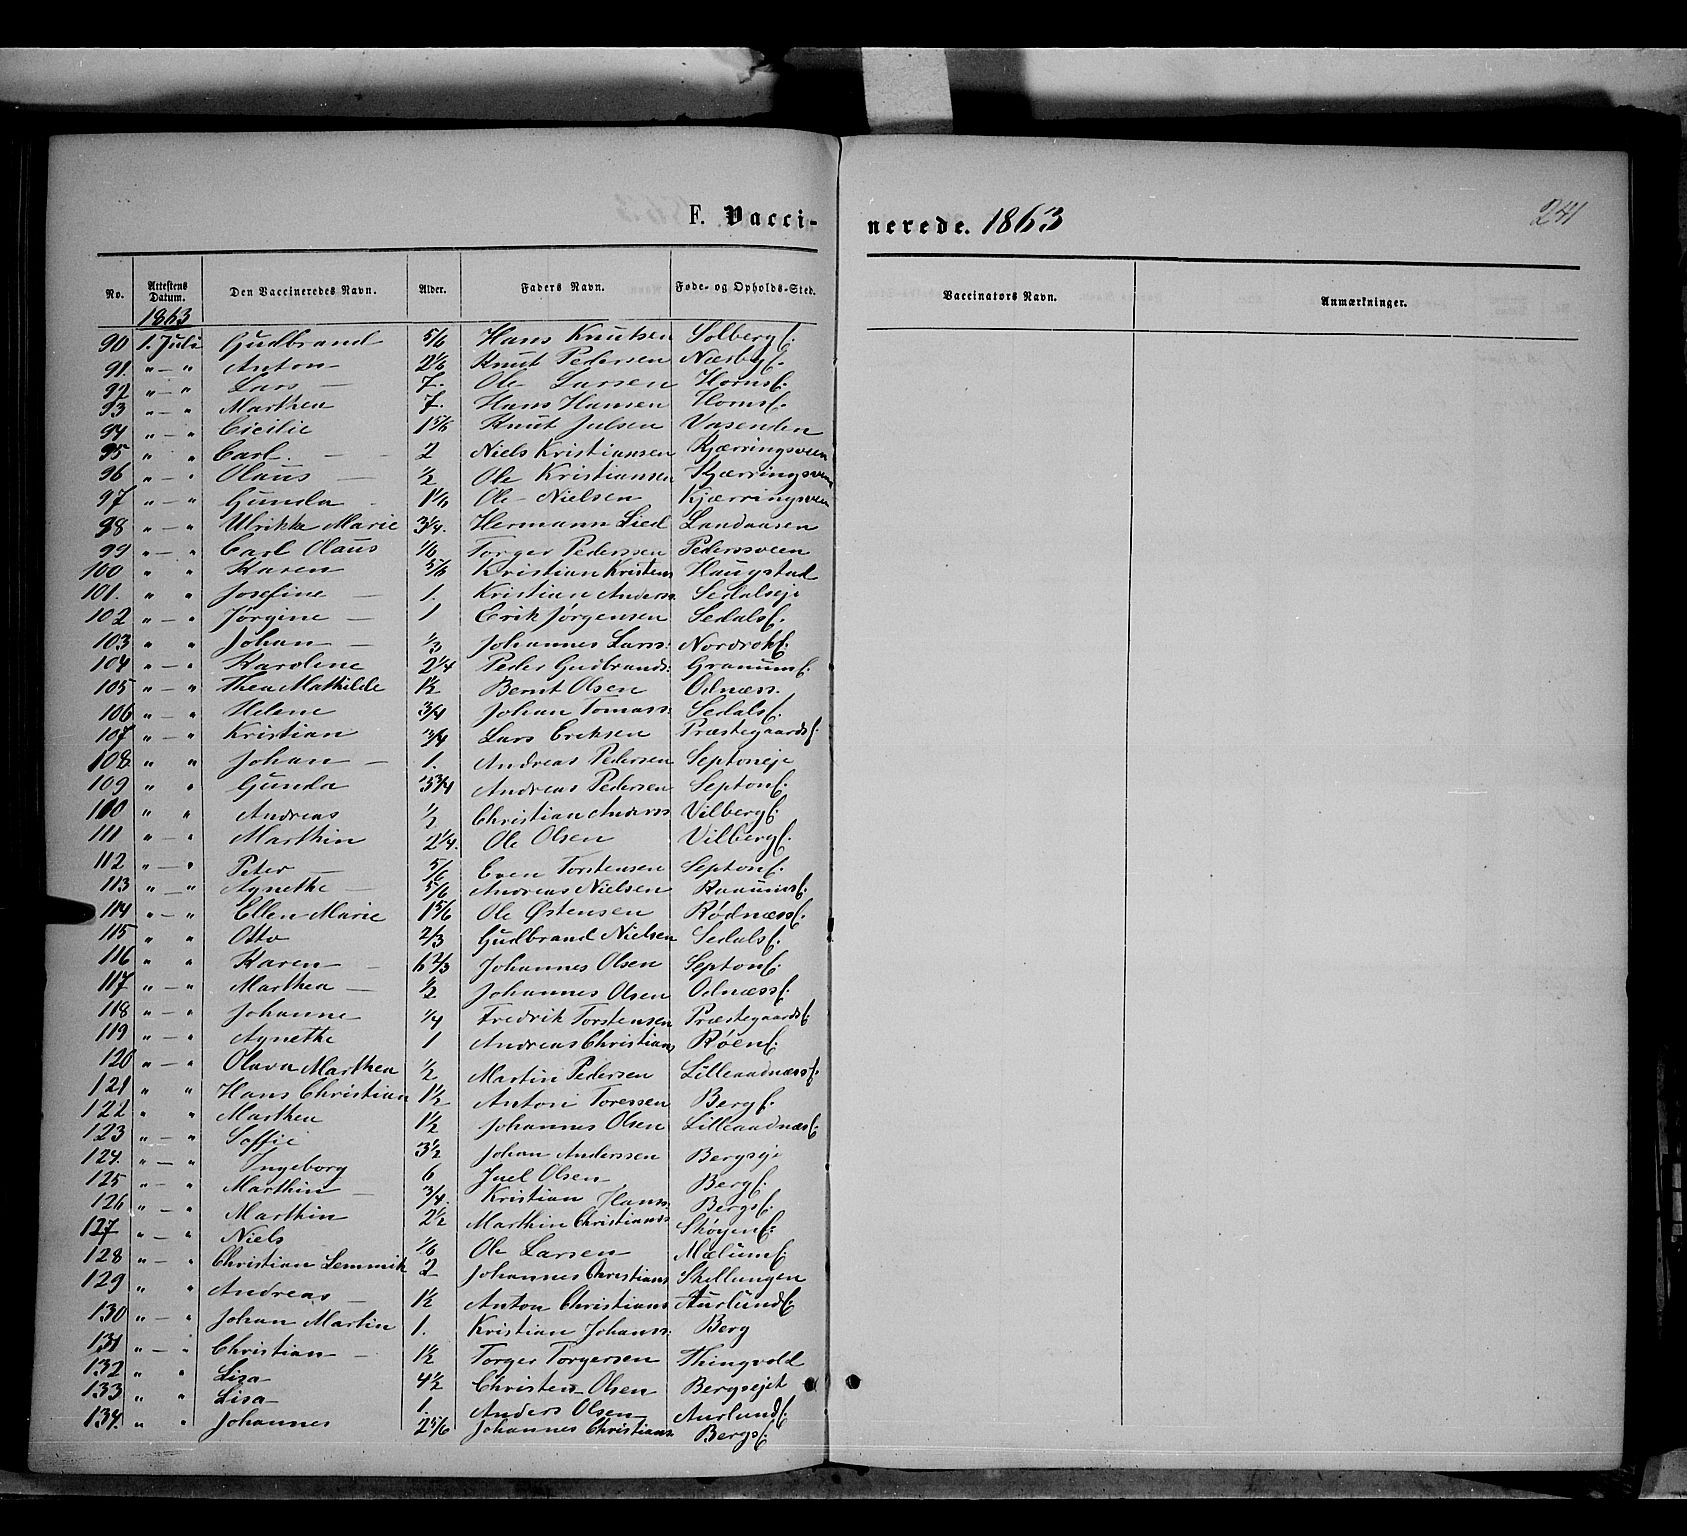 F. Vacci-
nerede. 1863
241
No. Attestens Datum. Den Vaccineredes Navn. Alder. Faders Navn. Føde- og Opholds-Sted. Vaccinators Navn. Anmærkninger.
1863
90 1. Juli Gudbrand 5/6 Hans Knutsen Solberg f:
91. " — " Anton 2 1/6 Knut Pedersen Næsby f.
92 " — " Lars — 7. Ole Larsen Horns f.
93 " — " Marthea 7. Hans Hansen Horns f.
94 " — " Cicilie 1 5/6 Knut Julsen Vasenden
95 " — " Carl. — 2 Niels Kristiansen Kjærringsveen
96 " — " Olaus — 1/2 Ole Kristiansen Kjærringsveen
97 " — " Gunda 1 1/6 Ole Nielsen Kjærringsveen
98 " — " Ulrikke Marie 3 1/4. Hermann Lied Landaasen
99 " — " Carl Olaus 1/6 Torger Pederssen Pederssveen
100 " " Karen 5/6 Kristian Kristens Haugstad
101. " " Josefine — 1. Kristian Anders: Sedalseje
102 " — " Jørgine — 1 Erik Jørgensen Sedals f.
103 " " Johan — 1/3 Johannes Larss: Nordrok f:
104 " — " Karoline 2 1/4 Peder Gudbrands: Granum f:
105 " — " Thea Mathilde 1 1/2 Bernt Olsen Odnæss.
106 " — " Helene 3/4 Johan Tomass: Sedals f.
107 " — " Kristian 3/4 Lars Eriksen Præstegaards f.
108 " " Johan — 1. Andreas Pedersen Septoneje
109 " " Gunda 5 3/4 Andreas Pedersen Septon f.
110 " " Andreas 1/2 Christian Anderss Vilberg f:
111 " — " Marthin 2 1/4. Ole Olsen Vilberg f.
112 " — " Peter — 5/6 Even Torstensen Septon f.
113 " — " Agnethe — 5/6 Andreas Nielsen Raaums f.
114 " — " Ellen Marie 1 5/6 Ole Østensen Rødnæss f.
115 " " Otto 2/3 Gudbrand Nielsen Sedals f.
116 " " Karen — 6 2/3 Johannes Olsen Septon f:
117 " — " Marthea — 1/2 Johannes Olsen Odnæss f.
118 " — " Johanne 1/4 Fredrik Torstensen Præstegaards f:
119 " — " Agnethe 1 Andreas Christians Røen f:
120 " — " Olava Marthea 1/2 Martin Pedersen Lilleaadnæss f:
121 " " Hans Christian 1 1/2 Anton Toressen Berg f.
122 " " Marthea 1 1/2 Johannes Olsen Lilleaadnæss f:
123 " — " Soffie 3 1/2 Johan Anderssen Bergseje
124. " — " Ingeborg 6 Juel Olsen Berg f.
125 " — " Marthin — 3/4. Kristian Hanss: Bergs f.
126 " — " Marthin 2 1/2 Marthin Christianss Skøyen f:
127 " — " Niels 1/6 Ole Larsen Mælum f:
128 " — " Christian Lemmik 2 Johannes Christians Skellungen
129 " " Andreas — 1 1/2 Anton Christians Aurlund f:
130 " — " Johan Martin 1. Kristian Johanss: Berg
131 " — " Christian — 1 1/2 Torger Torgersen Thingvold
132 " " Lisa 4 1/2 Christen Olsen Bergsejet
133 " " Lisa 1. Anders Olsen Aurlund f:
134. " " Johannes 2 5/6 Johannes Christians Bergs f.